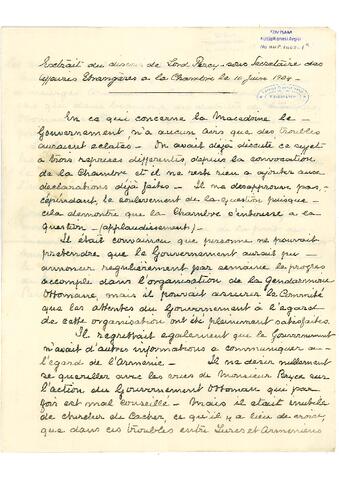 Extrait du discours de Lord Percy - sous Secrétaire des
Affaires Etrangères a la Chambre le 10 Juin 1904 -
En ce qui concerne la Macedoine le
Gouvernement n'a aucun avis que des troubles
auraient eclatés - On avait déjà discuté ce sujet
a trois reprises differentes, depuis la convocation
de la Chambre et il ne reste rien a ajouter aux
declarations déjà faites - Il ne desapprouve pas,
cependant, le soulevement de la question puisque
cela demontre que la Chambre s'interesse a la
question - (applaudissement) -
Il était convaincu que personne ne pouvait
prétendre que le Gouvernement aurait pu
annoncer regulièrement par semaine le progrès
accompli dans l'organisation de la Gendarmerie
Ottomane, mais il pouvait assurer le Comité
que les attentes du Gouvernement à l'égard
de cette organisation ont été pleinement satisfaites.
Il regrettait également que le Gouvernement
n'avait d'autres informations a communiquer a
l'égard de l'Arménie - Il ne desire nullement
se quereller avec les vues de Monsieur Bryce sur
l'action du Gouvernement Ottoman qui par
fois est mal conseillé - Mais il était inutile
de chercher de cacher, ce qu'il y a lieu de croire,
que dans ces troubles entre Turcs et Arméniens